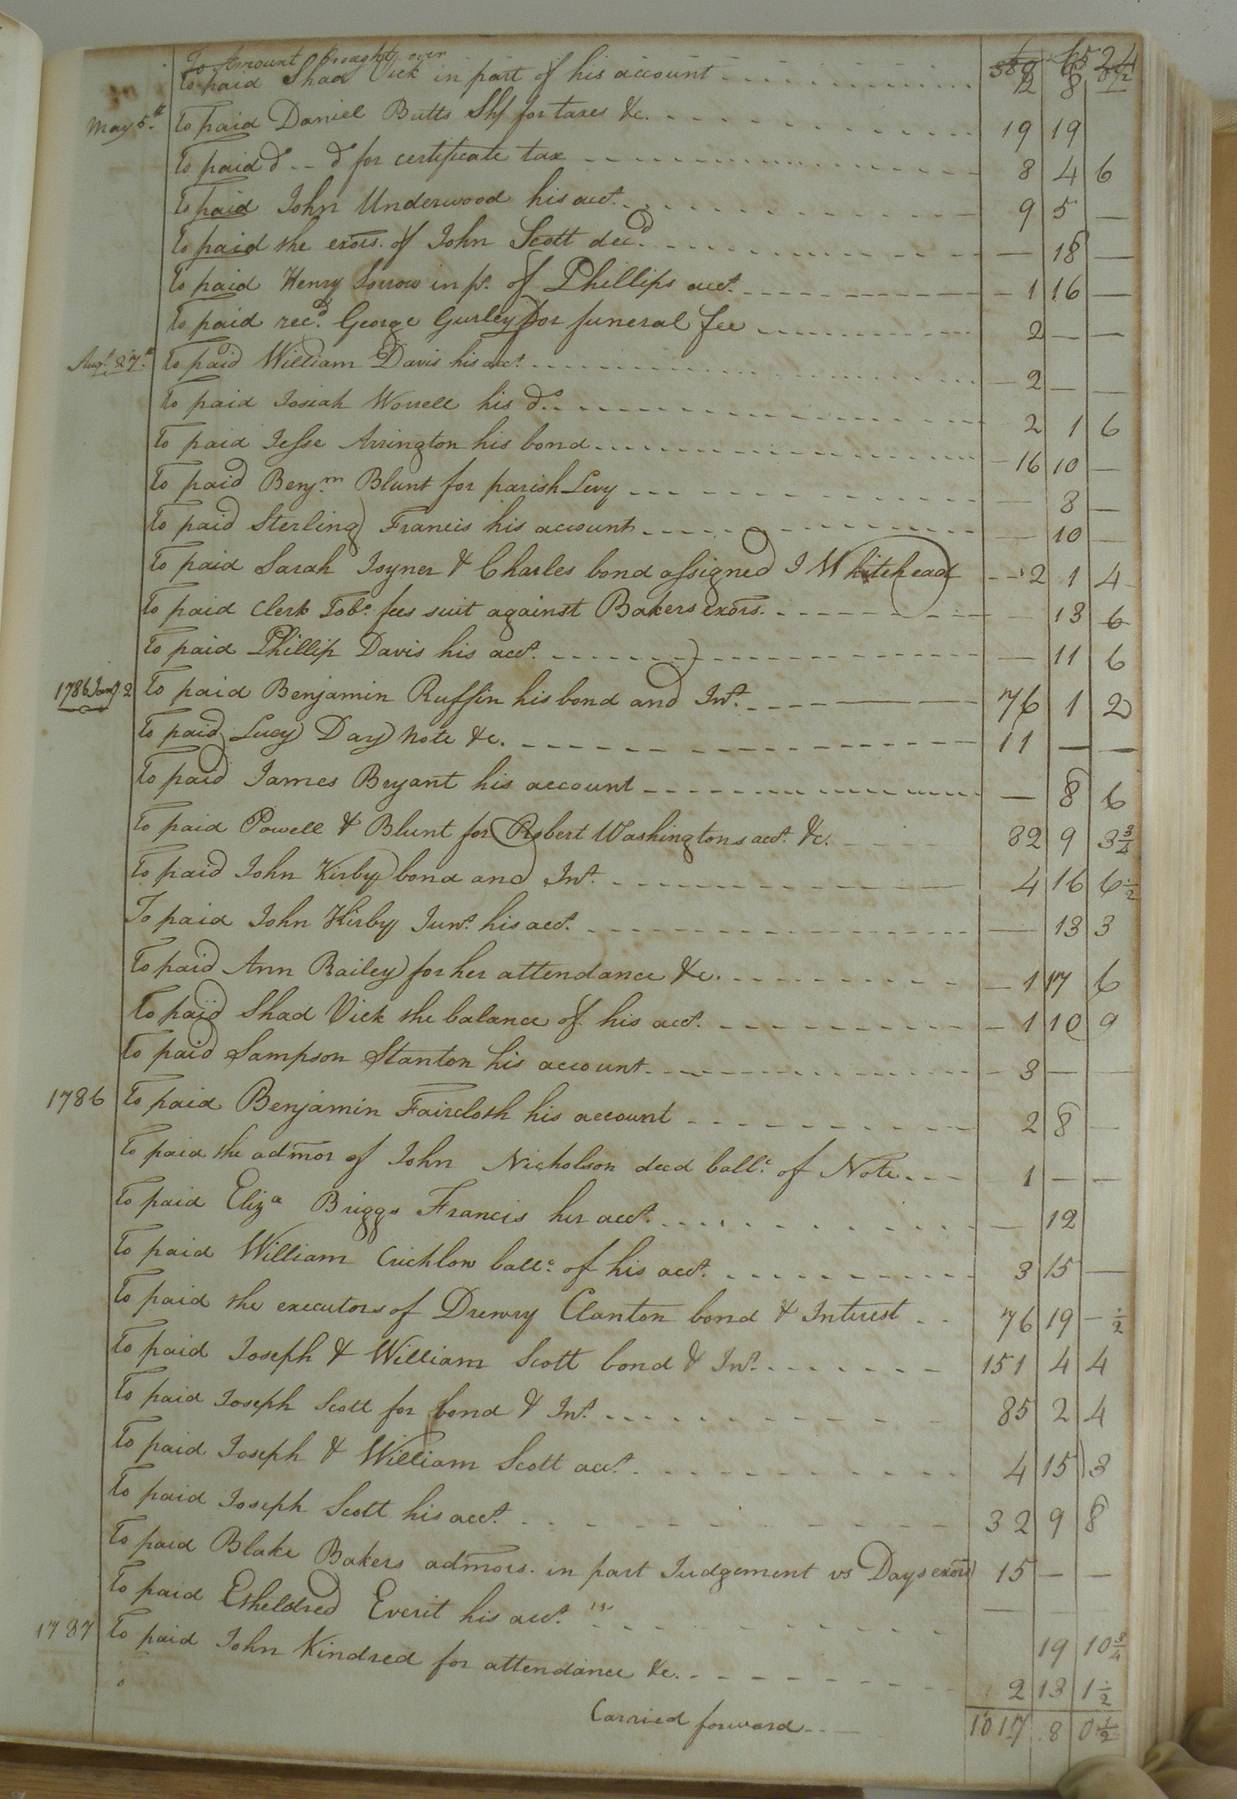 To Amount brought over
To paid Shad Vick in part of his account 12 8
May 5th To paid Daniel Butts Shf for taxes &c. 19 19
To paid do do for certificate tax 8 4 6
To paid John Underwood his acct. 9 5 —
To paid the exors. of John Scott decd. — 18 —
To paid Henry Sorrow in pt. of Phillips acct. 1 16 —
To paid recd. George Gurley for funeral fee 2 — —
Augt. 27th To paid William Davis his acct. 2 — —
To paid Josiah Worrell his do. 2 1 6
To paid Jesse Arrington his bond 16 10 —
To paid Benjm. Blunt for parish Levy — 8 —
To paid Sterling Francis his account — 10 —
To paid Sarah Joyner & Charles bond assigned J Whitehead 2 1 4
To paid Clerk Tobo. fees suit against Bakers exors. 13 6
To paid Phillip Davis his acct. — 11 6
1786 Jany. 2 To paid Benjamin Ruffin his bond and Int. 76 1 2
To paid Lucy Day Note &c. 11 — —
To paid James Bryant his account — 8 6
To paid Powell & Blunt for Robert Washingtons acct. &c. 82 9 3 3/4
To paid John Kirby bond and Int. 4 16 6 1/2
To paid John Kirby Junr. his acct. — 13 3
To paid Ann Bailey for her attendance &c. 1 17 6
To paid Shad Vick the balance of his acct. 1 10 9
To paid Sampson Stanton his account 3 — —
1786 To paid Benjamin Faircloth his account 2 8 —
To paid the admor of John Nicholson decd ballc. of Note 1 — —
To paid Eliza Briggs Francis her acct. — 12
To paid William Crichlow ballc. of his acct. 3 15 —
To paid the executors of Drewry Clanton bond & Interest 76 19 — 1/2
To paid Joseph & William Scott bond & Int. 151 4 4
To paid Joseph Scott for bond & Int. 85 2 4
To paid Joseph & William Scott acct. 4 15 3
To paid Joseph Scott his acct. 32 9 8
To paid Blake Bakers admors. in part Judgement vs Days exors 15 — —
To paid Etheldred Everit his acct. 19 10 3/4
1787 To paid John Kindred for attendance &c. 2 13 1 1/2
Carried forward 1017 8 0 1/2